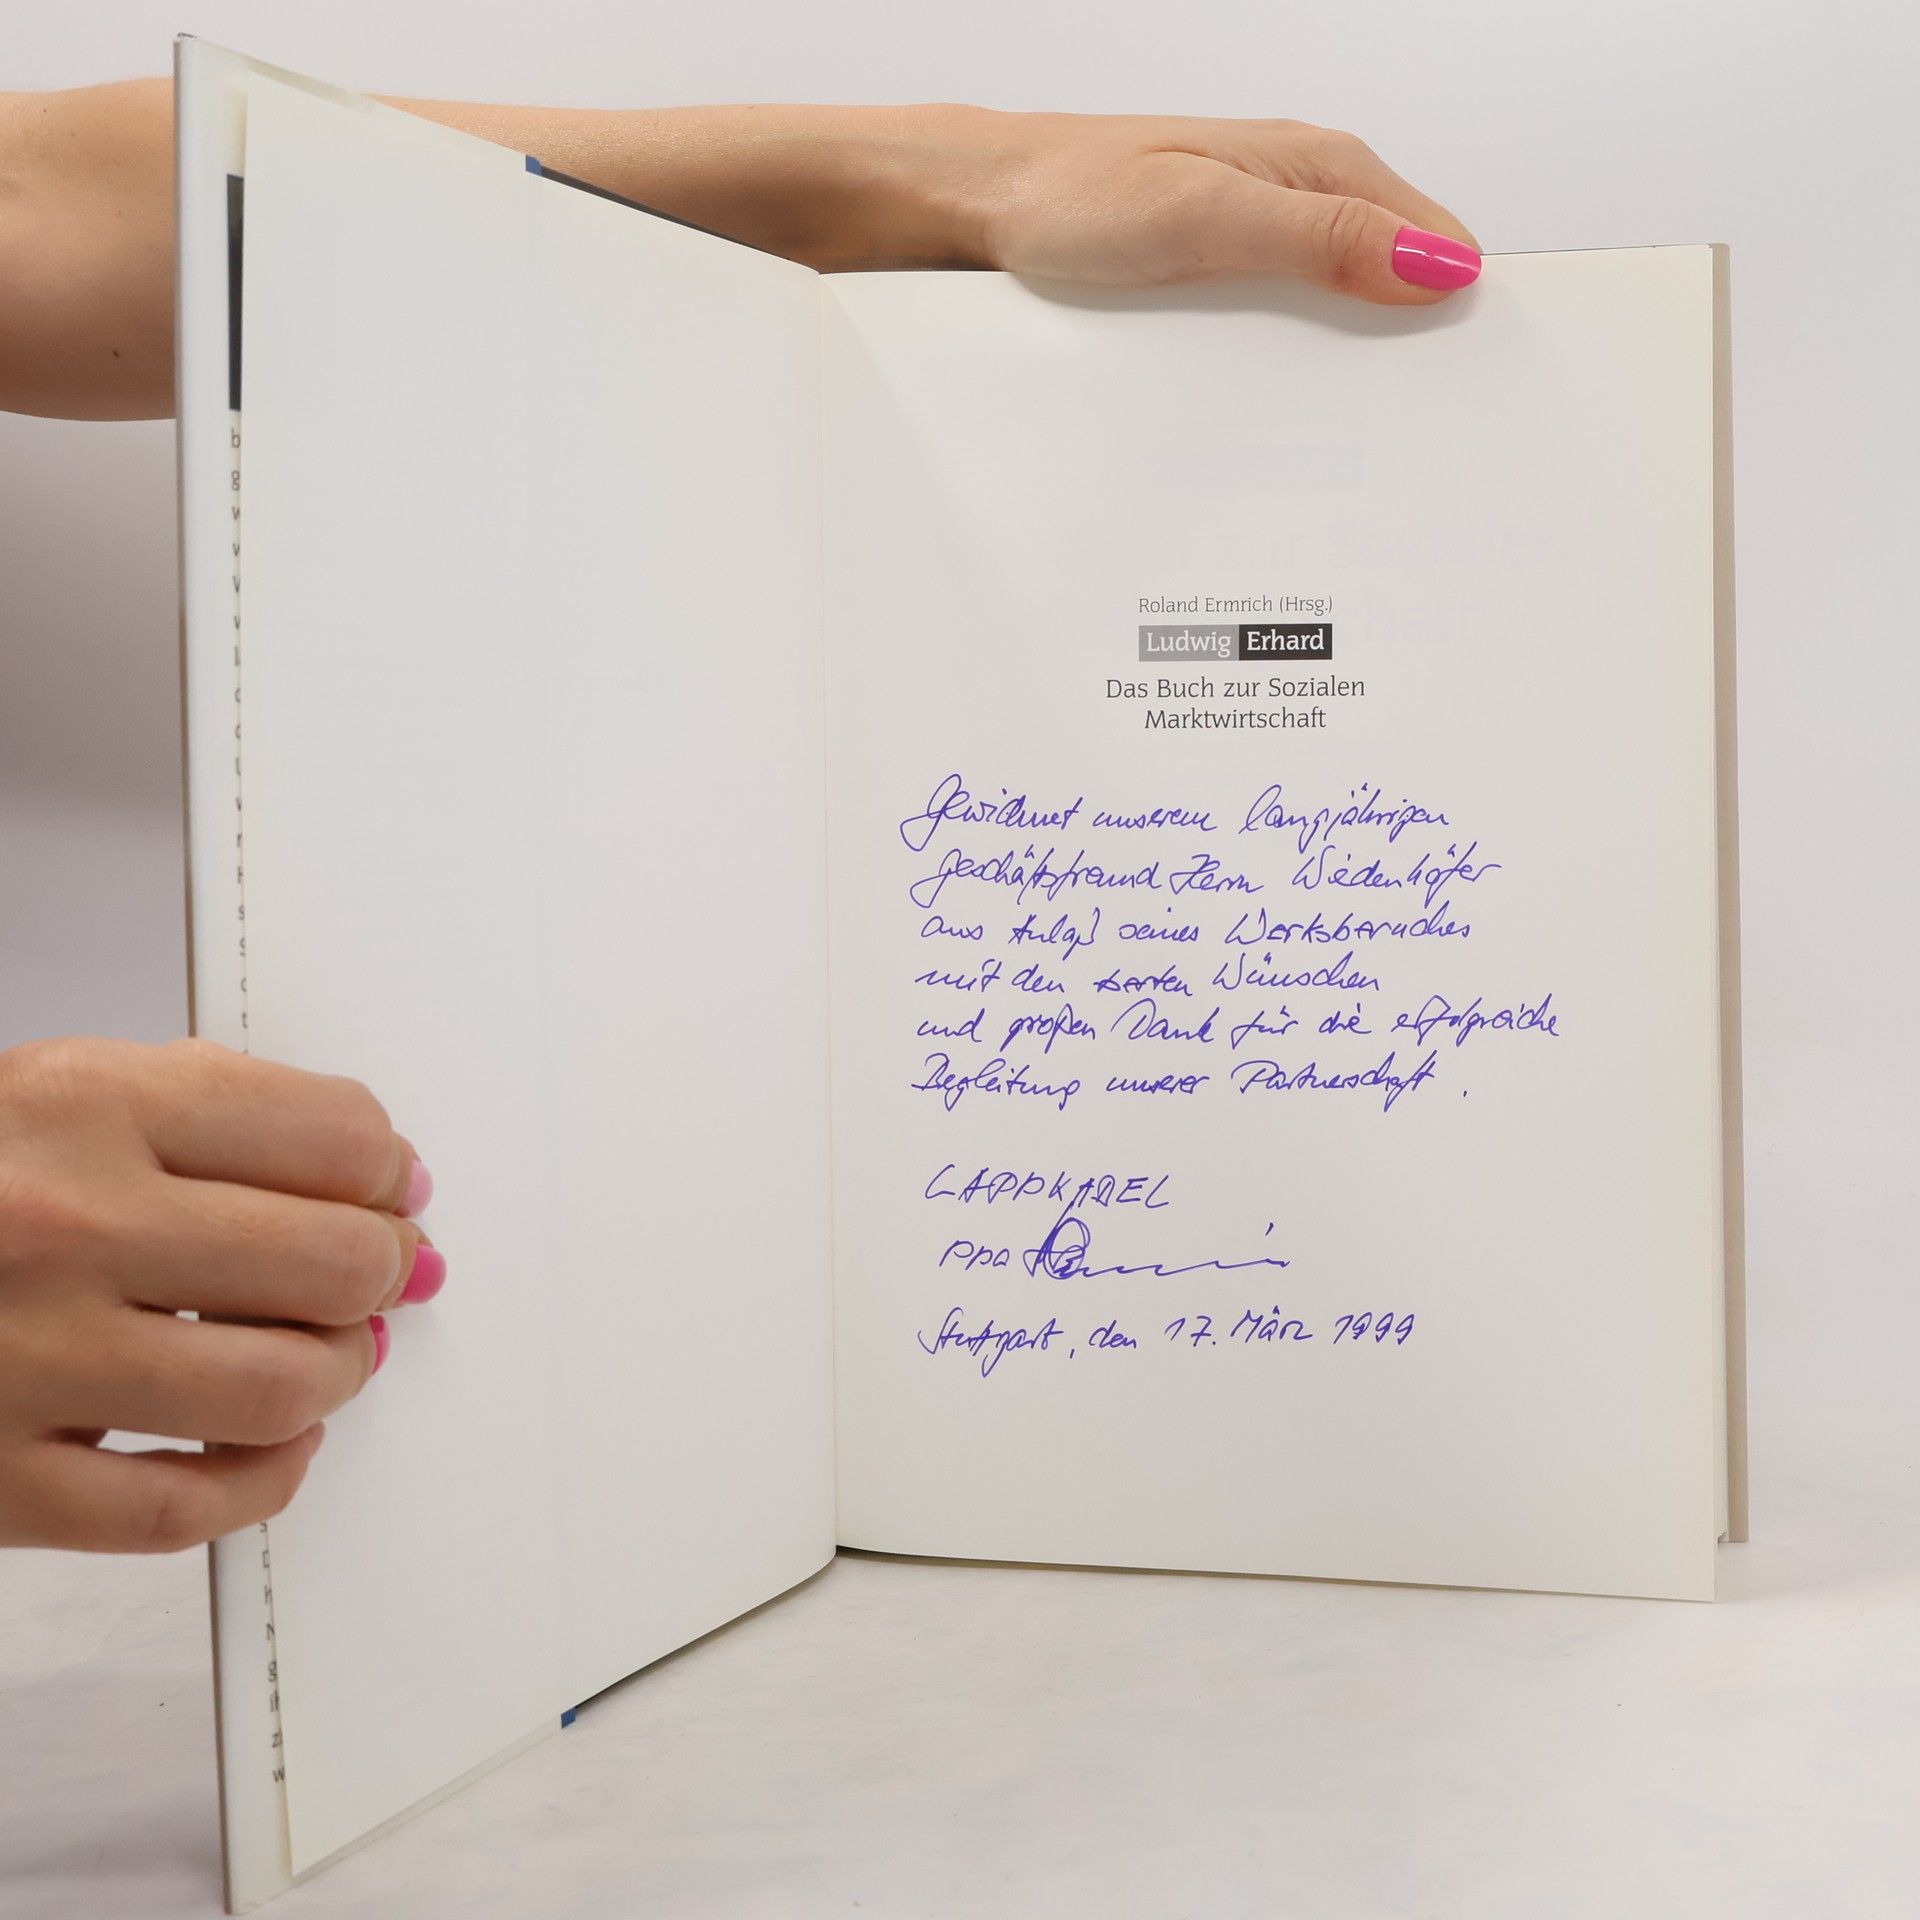 Roland Ermrich (Hrsg.)
Ludwig Erhard
Das Buch zur Sozialen
Marktwirtschaft
Gewidmet unserem langjährigen
Geschäftsfreund Herrn Wiedenhöfer
aus Anlaß seines Werksbesuches
mit den besten Wünschen
und großen Dank für die erfolgreiche
Begleitung unserer Partnerschaft.
LAPPKABEL
ppa
Stuttgart, den 17. März 1999